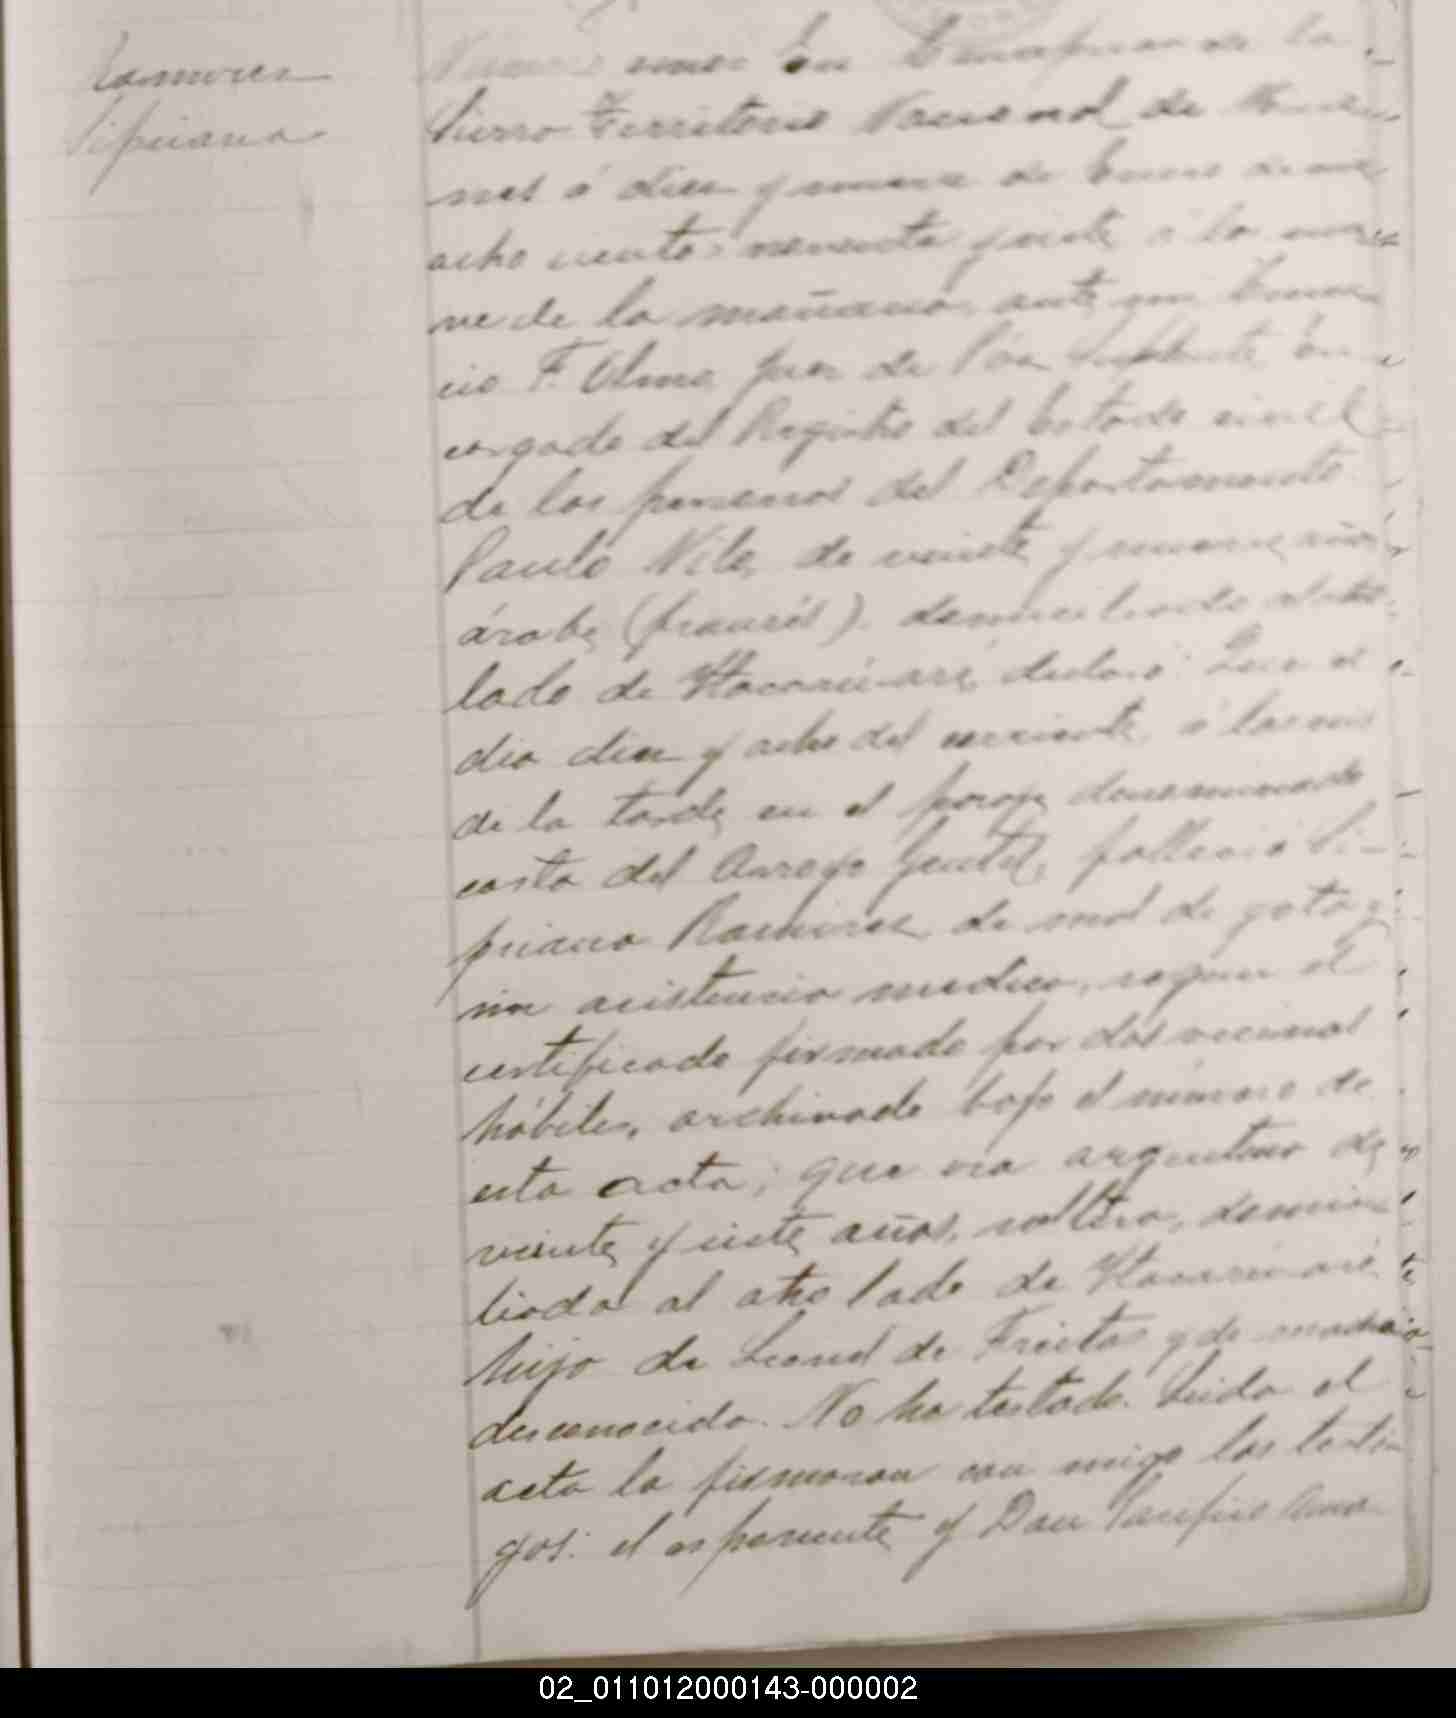 Ramirez
Sipriano
Numero uno: En Concepcion de la
Sierra Territorio Nacional de Misio-
nes á diez y nueve de Enero de mil
ocho cientos noventa y siete á las nue-
ve de la mañana, ante mi
cio F. Olmo Juez de Paz Suplente En-
cargado del Registro del Estado civil
de las personas del Departamento
Paulo Nile, de veinte y nueve años
árabe (francés). domiciliado al otro
lado de Itacaruaré, declaró: Que el
dia diez y ocho del corriente, á las seis
de la tarde, en el paraje denominado
costa del Arroyo Gentil, fallecio Si-
priano Ramirez, de mal de gota y
sin asistencia medica, segun el
certificado firmado por dos vecinos
hábiles, archivado bajo el número de
esta acta; que era argentino de
veinte y siete años, soltero, domici-
liado al otro lado de Itacaruaré
hijo de Leonel de Freitas y de madre
desconocida. No ha testado. Leida el
acta la firmaron con migo los testi-
gos: el esponente y Don
02_011012000143-000002